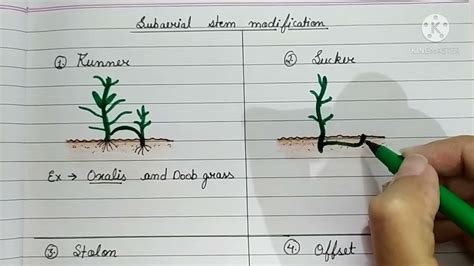 Subaerial stem modification
① Runner
② Sucker
Ex → Oxalis and Doob grass
③ Stolon
④ Offset